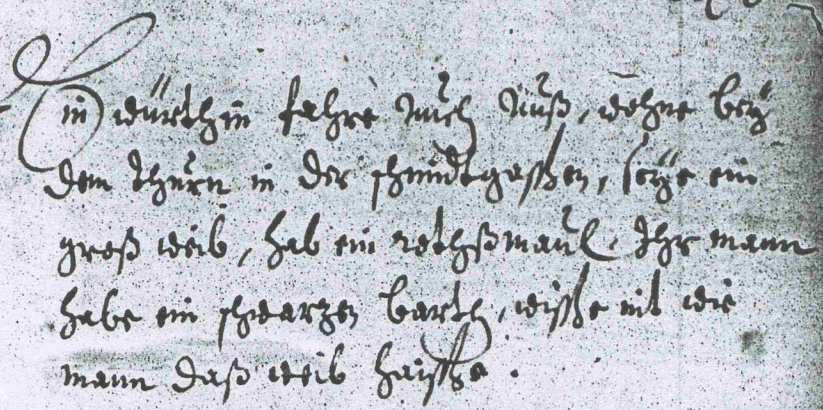 Ein würthin fahre auch auß, wohne bey
dem thurn in der schmidtgassen, seye ein
groß weib, hab ein rothß maul. Ihr mann
habe ein schwarzen barth, wisse nit wie
mann daß weib haisse.